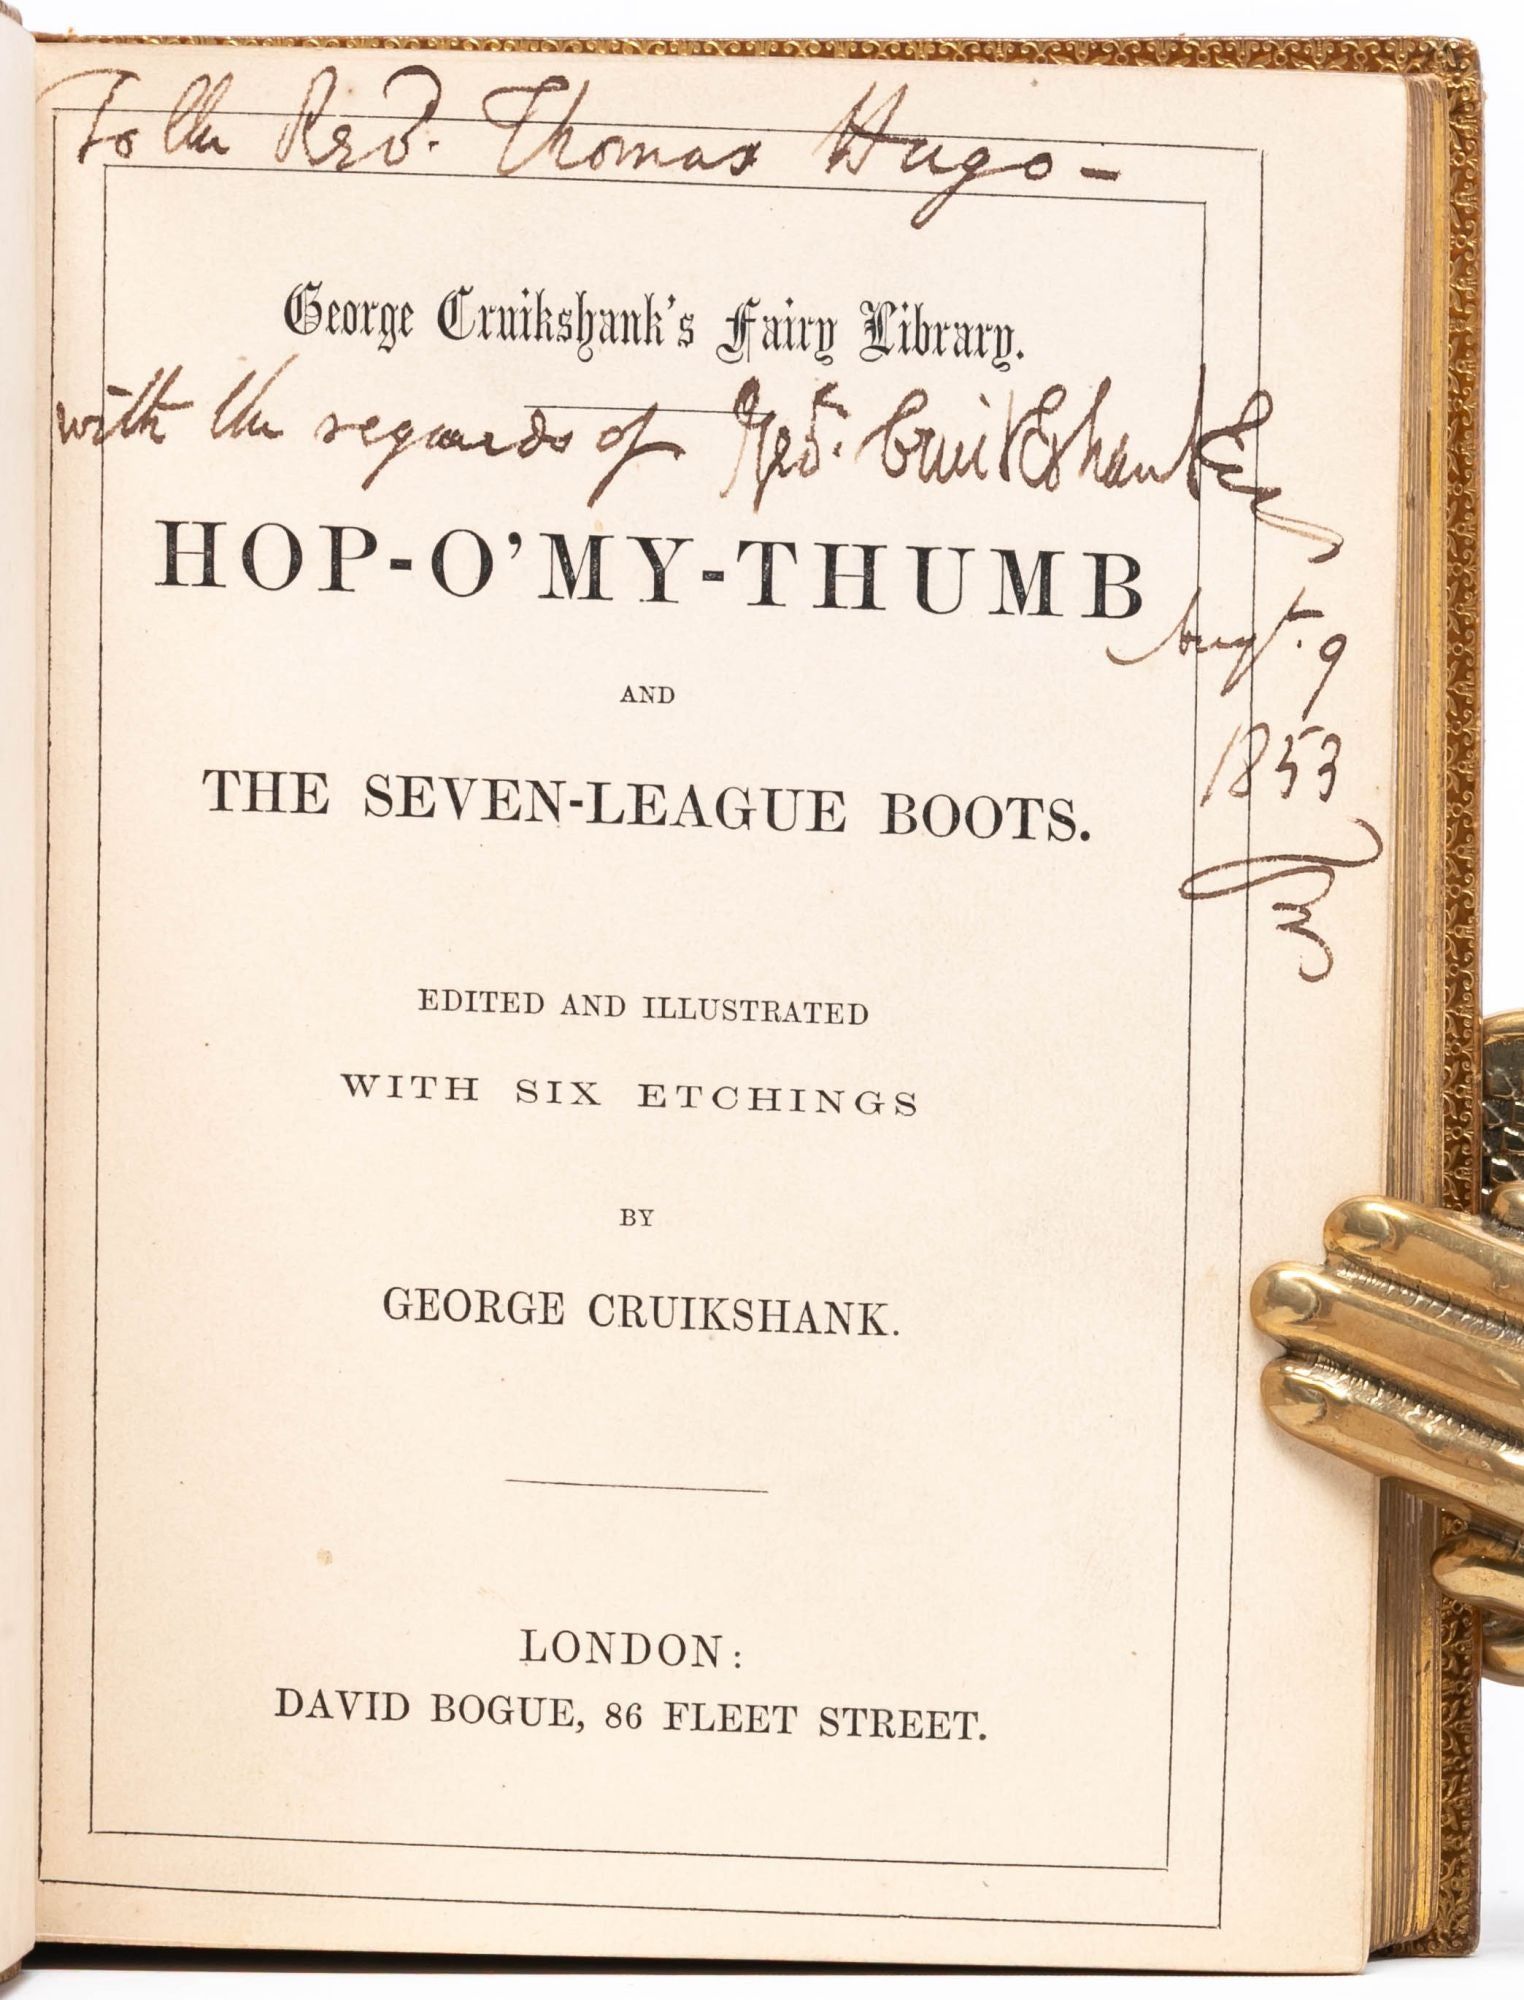 To the Revd. Thomas Hugo -
George Cruikshank's Fairy Library.
with the regards of Geo. Cruikshank
HOP-O'MY-THUMB
Augt. 9
AND
1853
THE SEVEN-LEAGUE BOOTS.
EDITED AND ILLUSTRATED
WITH SIX ETCHINGS
BY
GEORGE CRUIKSHANK.
LONDON:
DAVID BOGUE, 86 FLEET STREET.